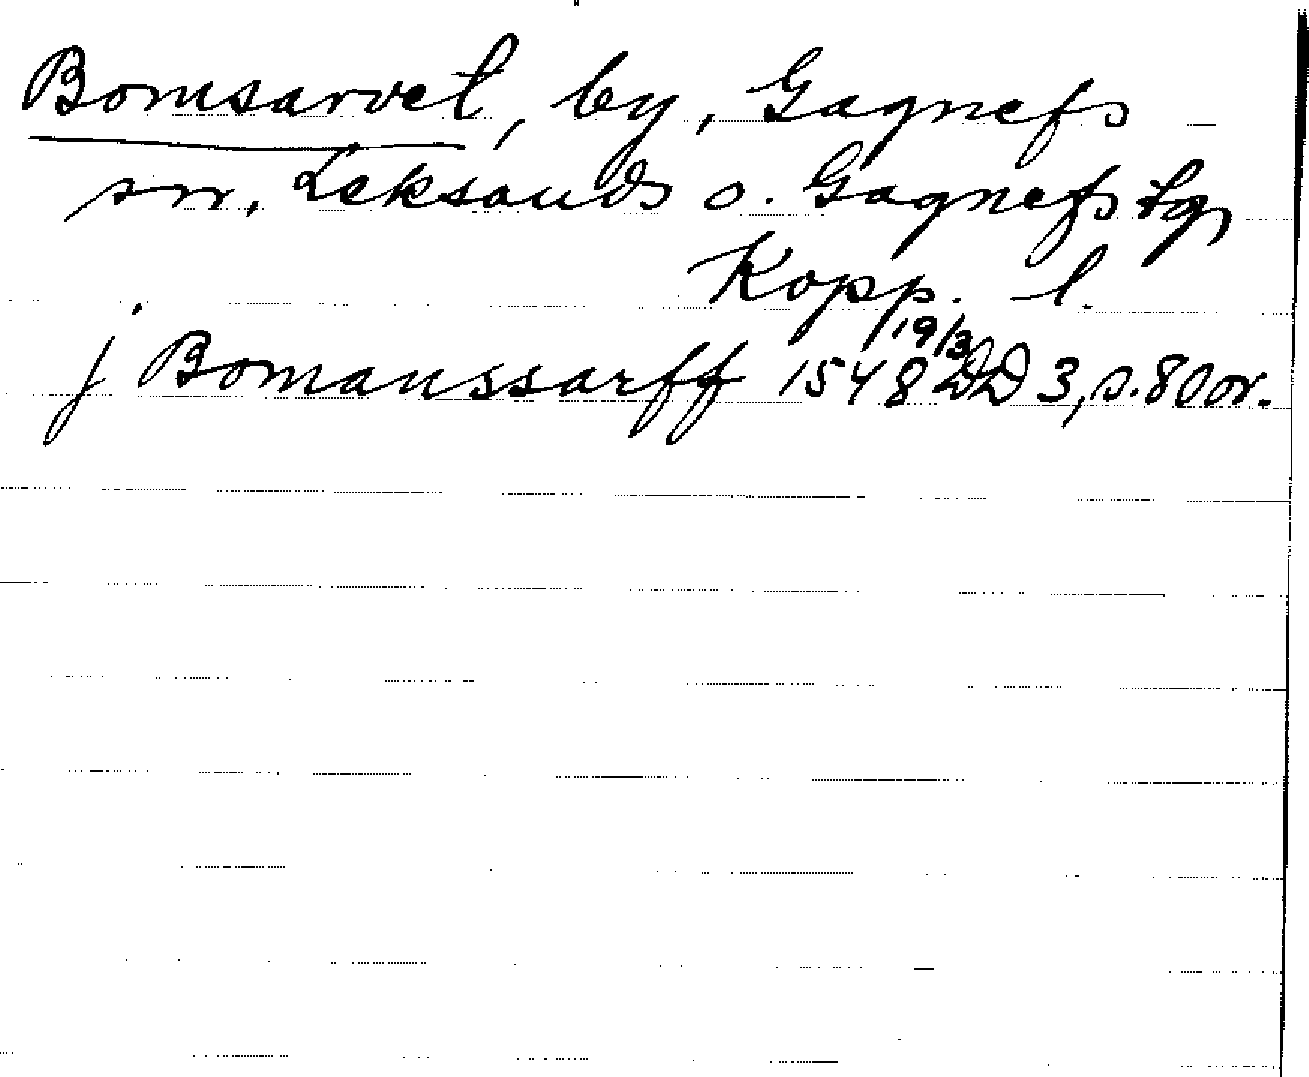 Bomsarvet, by, Gagnefs
sn, Leksands o. Gagnefs tg,
Kopp. l.
j Bomanssarff 1548 19/3 DD 3, s. 80 or.